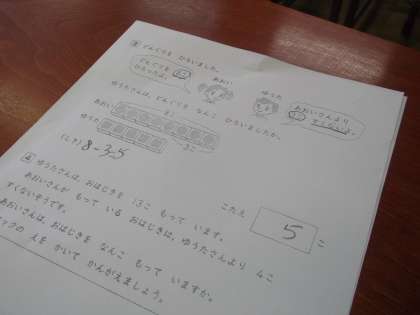 3 どんぐりを ひろいました。
あおい
どんぐりを
8こ
ひろったよ。
ゆうた
あおいさんより
3こ すくないよ。
ゆうたさんは、どんぐりを なんこ ひろいましたか。
あおい
8こ
ゆうた
3こ
(しき) 8-3=5
こたえ 5 こ
4 ゆうたさんは、おはじきを 13こ もって います。
あおいさんが もって いる おはじきは、ゆうたさんより 4こ
すくないそうです。
あおいさんは、おはじきを なんこ もって いますか。
の 人を かいて かんがえましょう。